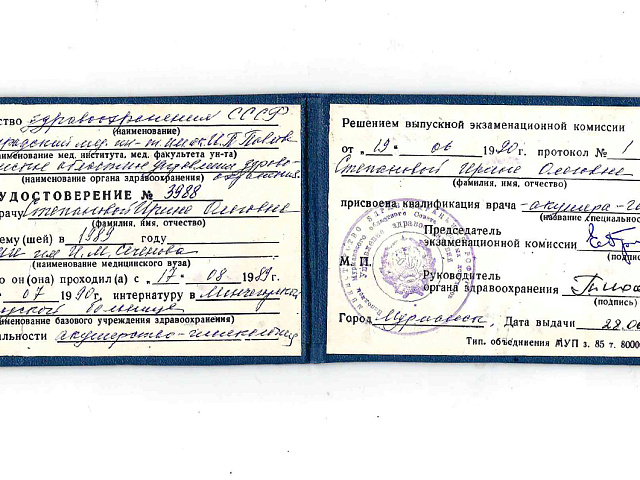 ство здравоохранения СССР
(наименование)
градский мед. ин-т им. ак. И.П. Павлова
наименование мед. института, мед. факультета ун-та)
областное управление здраво-
(наименование органа здравоохранения) охранения
УДОСТОВЕРЕНИЕ № 3988
врачу Степановой Ирине Олеговне
(фамилия, имя, отчество)
ему(шей) в 1989 году
им И.М. Сеченова
(наименование медицинского вуза)
о он (она) проходил(а) с „17“ 08 1989г.
07 1990г. интернатуру в
больнице
именование базового учреждения здравоохранения)
альности акушерство-гинекология
Решением выпускной экзаменационной комиссии
от „19“ 06 1990г. протокол № 1
Степановой Ирине Олеговне
(фамилия, имя, отчество)
присвоена квалификация врача -акушера-ги
(название специальнос
Председатель
экзаменационной комиссии
(подпи
М. П.
Руководитель
органа здравоохранения
(подпись)
Город Мурманск. Дата выдачи 22.06
Тип. объединения МУП з. 85 т. 8000